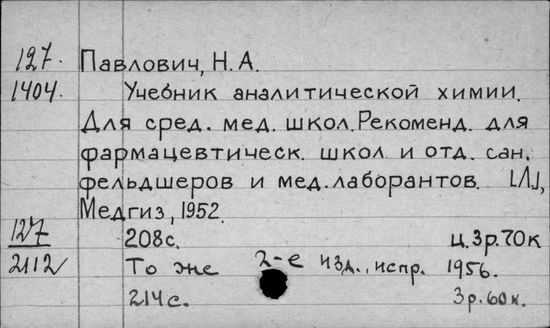 127. Павлович, Н. А.
1404. Учебник аналитической химии.
Для сред. мед. школ. Рекоменд. для
фармацевтическ. школ и отд. сан.
фельдшеров и мед. лаборантов. [Л.],
Медгиз, 1952.
127 208 с. ц. 3 р. 70 к
2112 То же 2-е изд., испр. 1956.
214 с. 3 р. 60 к.